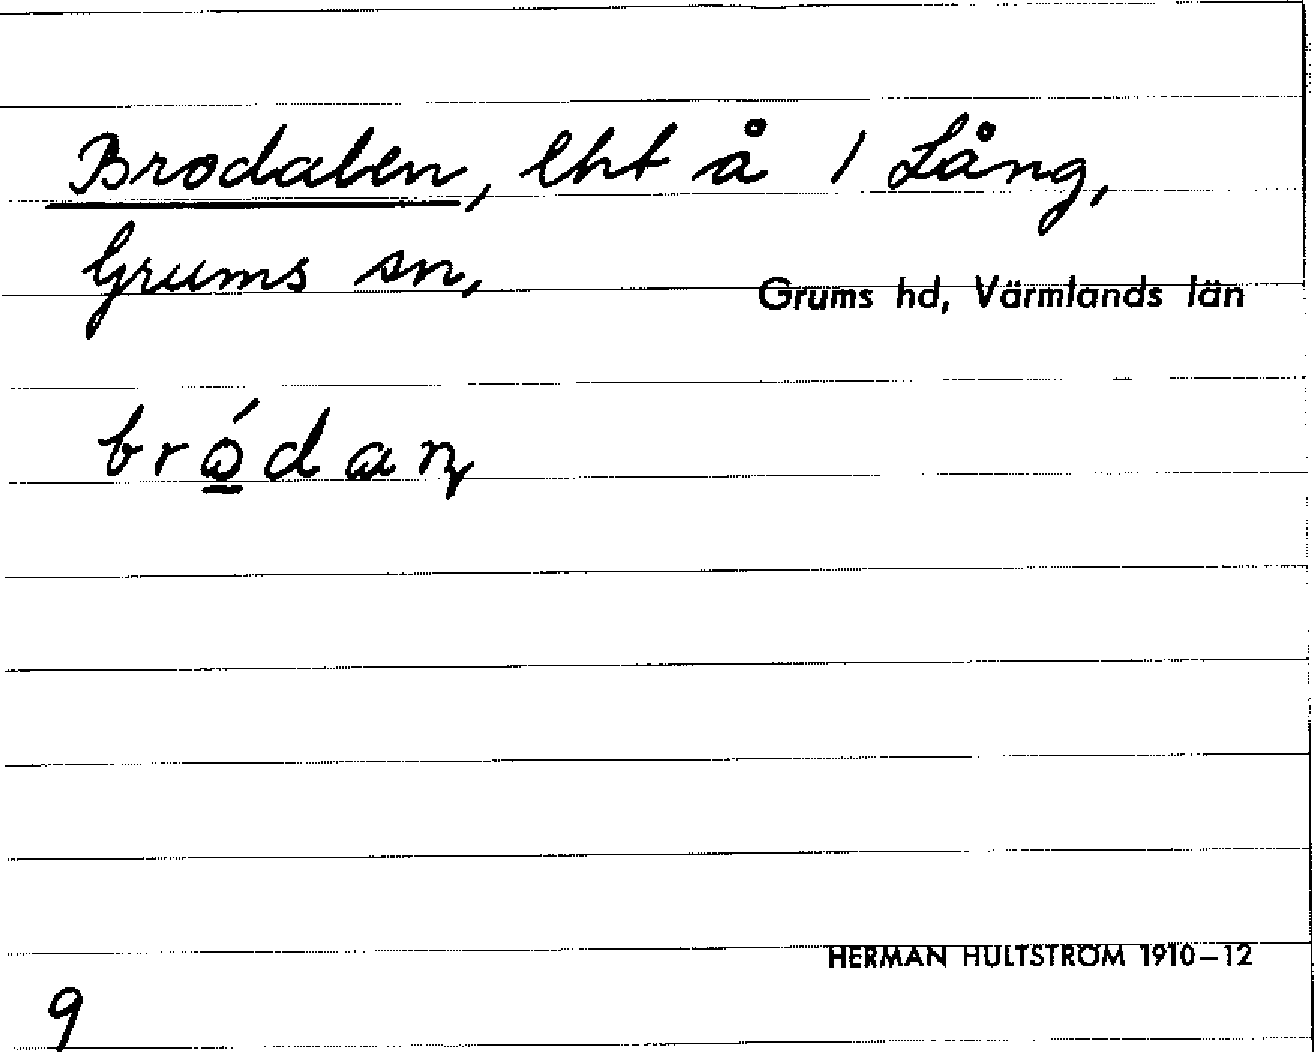 Brodalen, lht å 1 Lång,
Grums sn,
Grums hd, Värmlands län
bródan
HERMAN HULTSTRÖM 1910–12
9